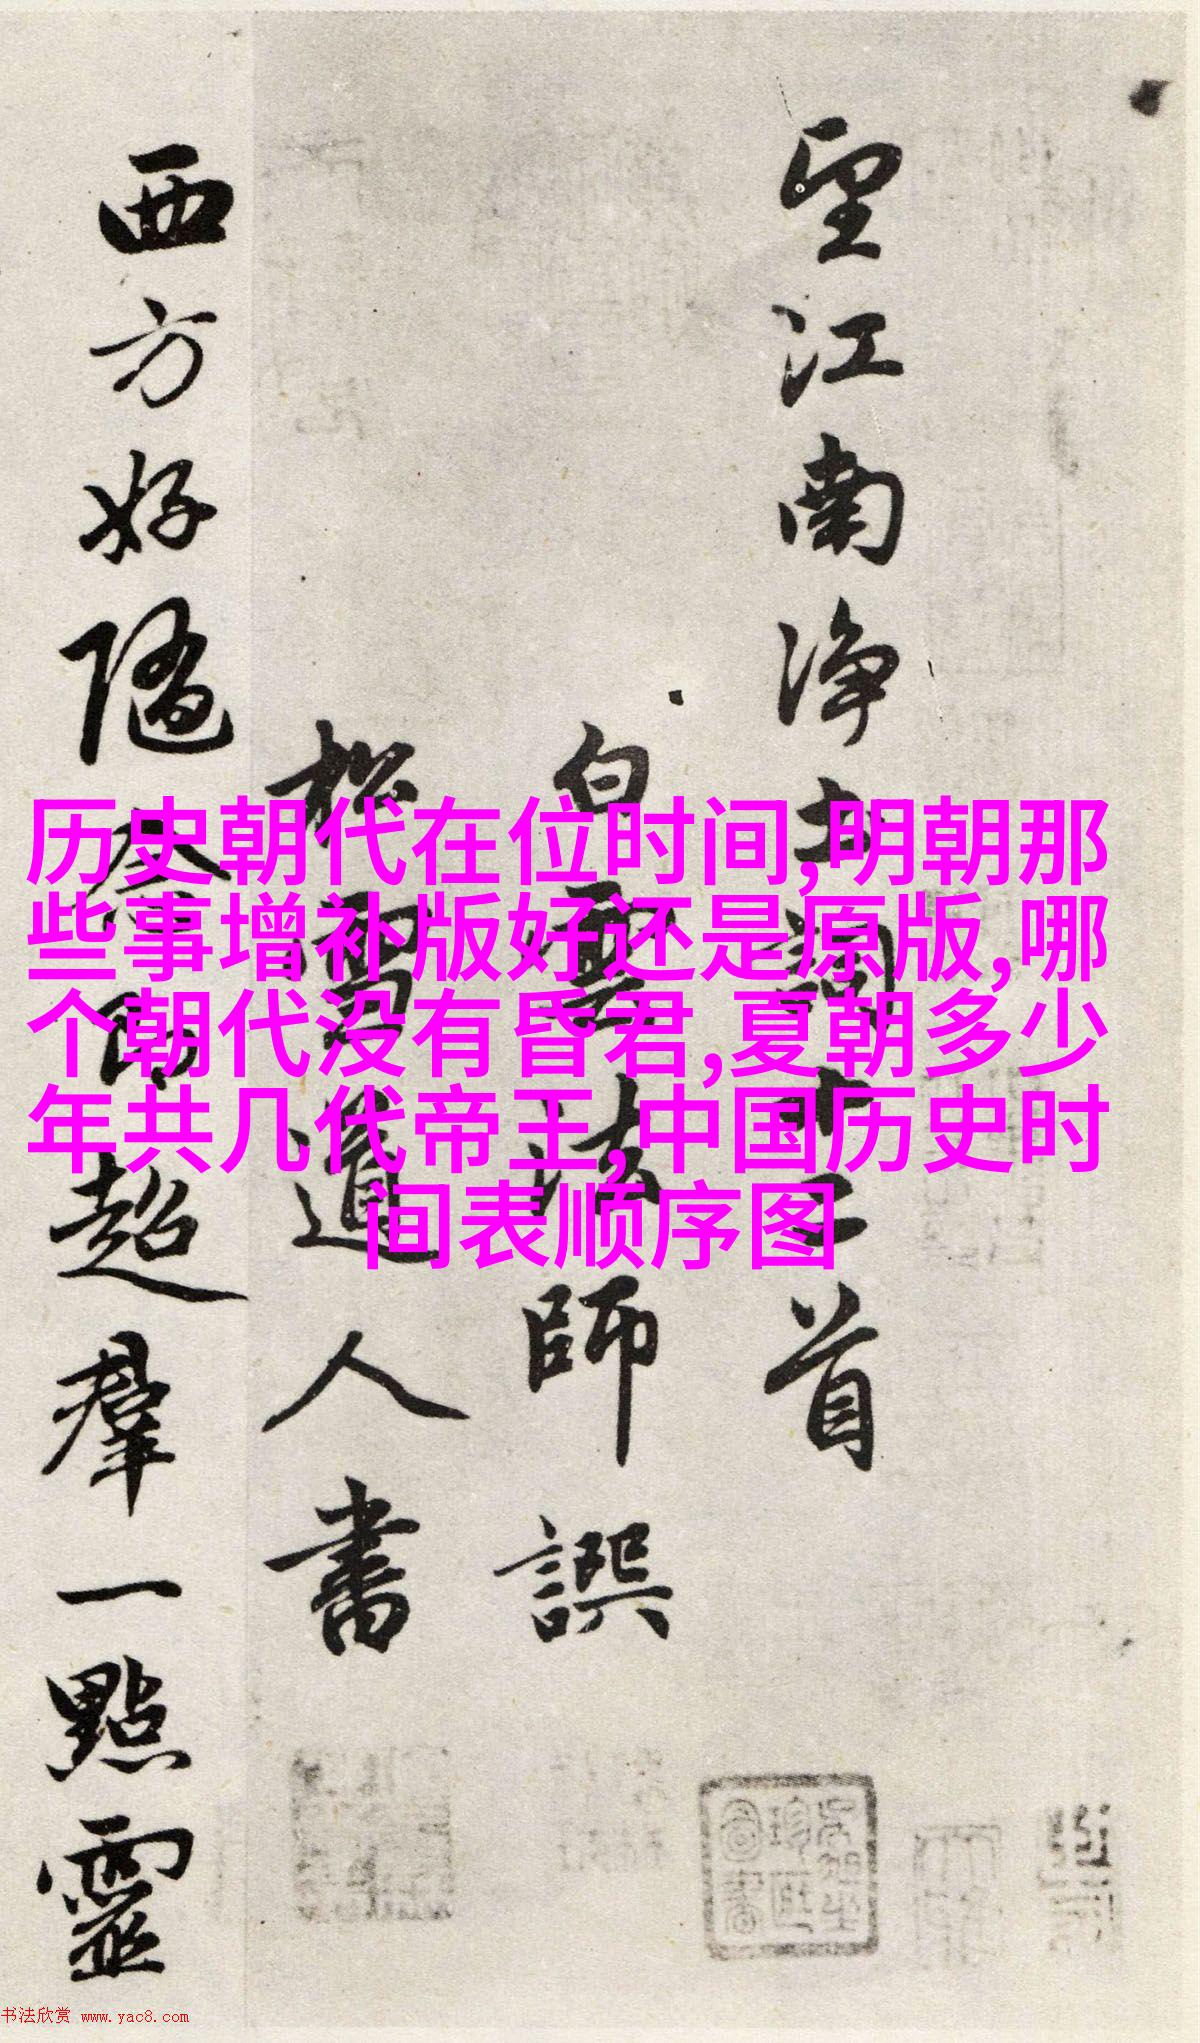 望江南淨土詞十二首
白雲法師譔
松雪道人書
西方好隨念即超羣一點靈
历史朝代在位时间,明朝那
些事增补版好还是原版,哪
个朝代没有昏君,夏朝多少
年共几代帝王,中国历史时
间表顺序图
书法欣赏 www.yac8.com